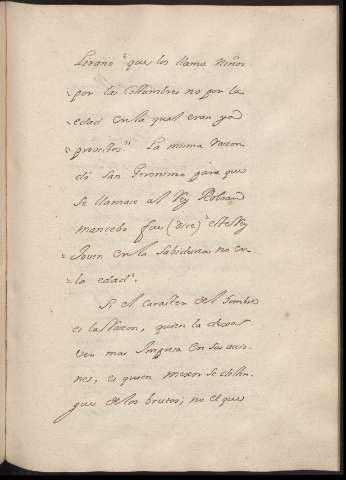 Lirano "que los llama Niños
"por las Costumbres no por la
"edad en la qual eran ya
"provectos". La misma razon
dá San Geronimo para que
se llamase al Rey Roboan
mancebo fue (dice) "este Rey
"Joven en la Sabiduria no en
"la edad".
Si el caracter del hombre
es la Razon, quien la dexa
ver mas Impresa en sus accio-
nes, es quien mexor se distin-
gue de los brutos; no el que